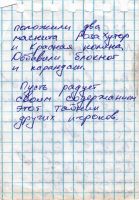 положили два
магнита Роза Хутор
и Красная поляна,
Оставили блокнот
и карандаш.
Пусть радует
своим содержанием
этот тайник
других игроков.